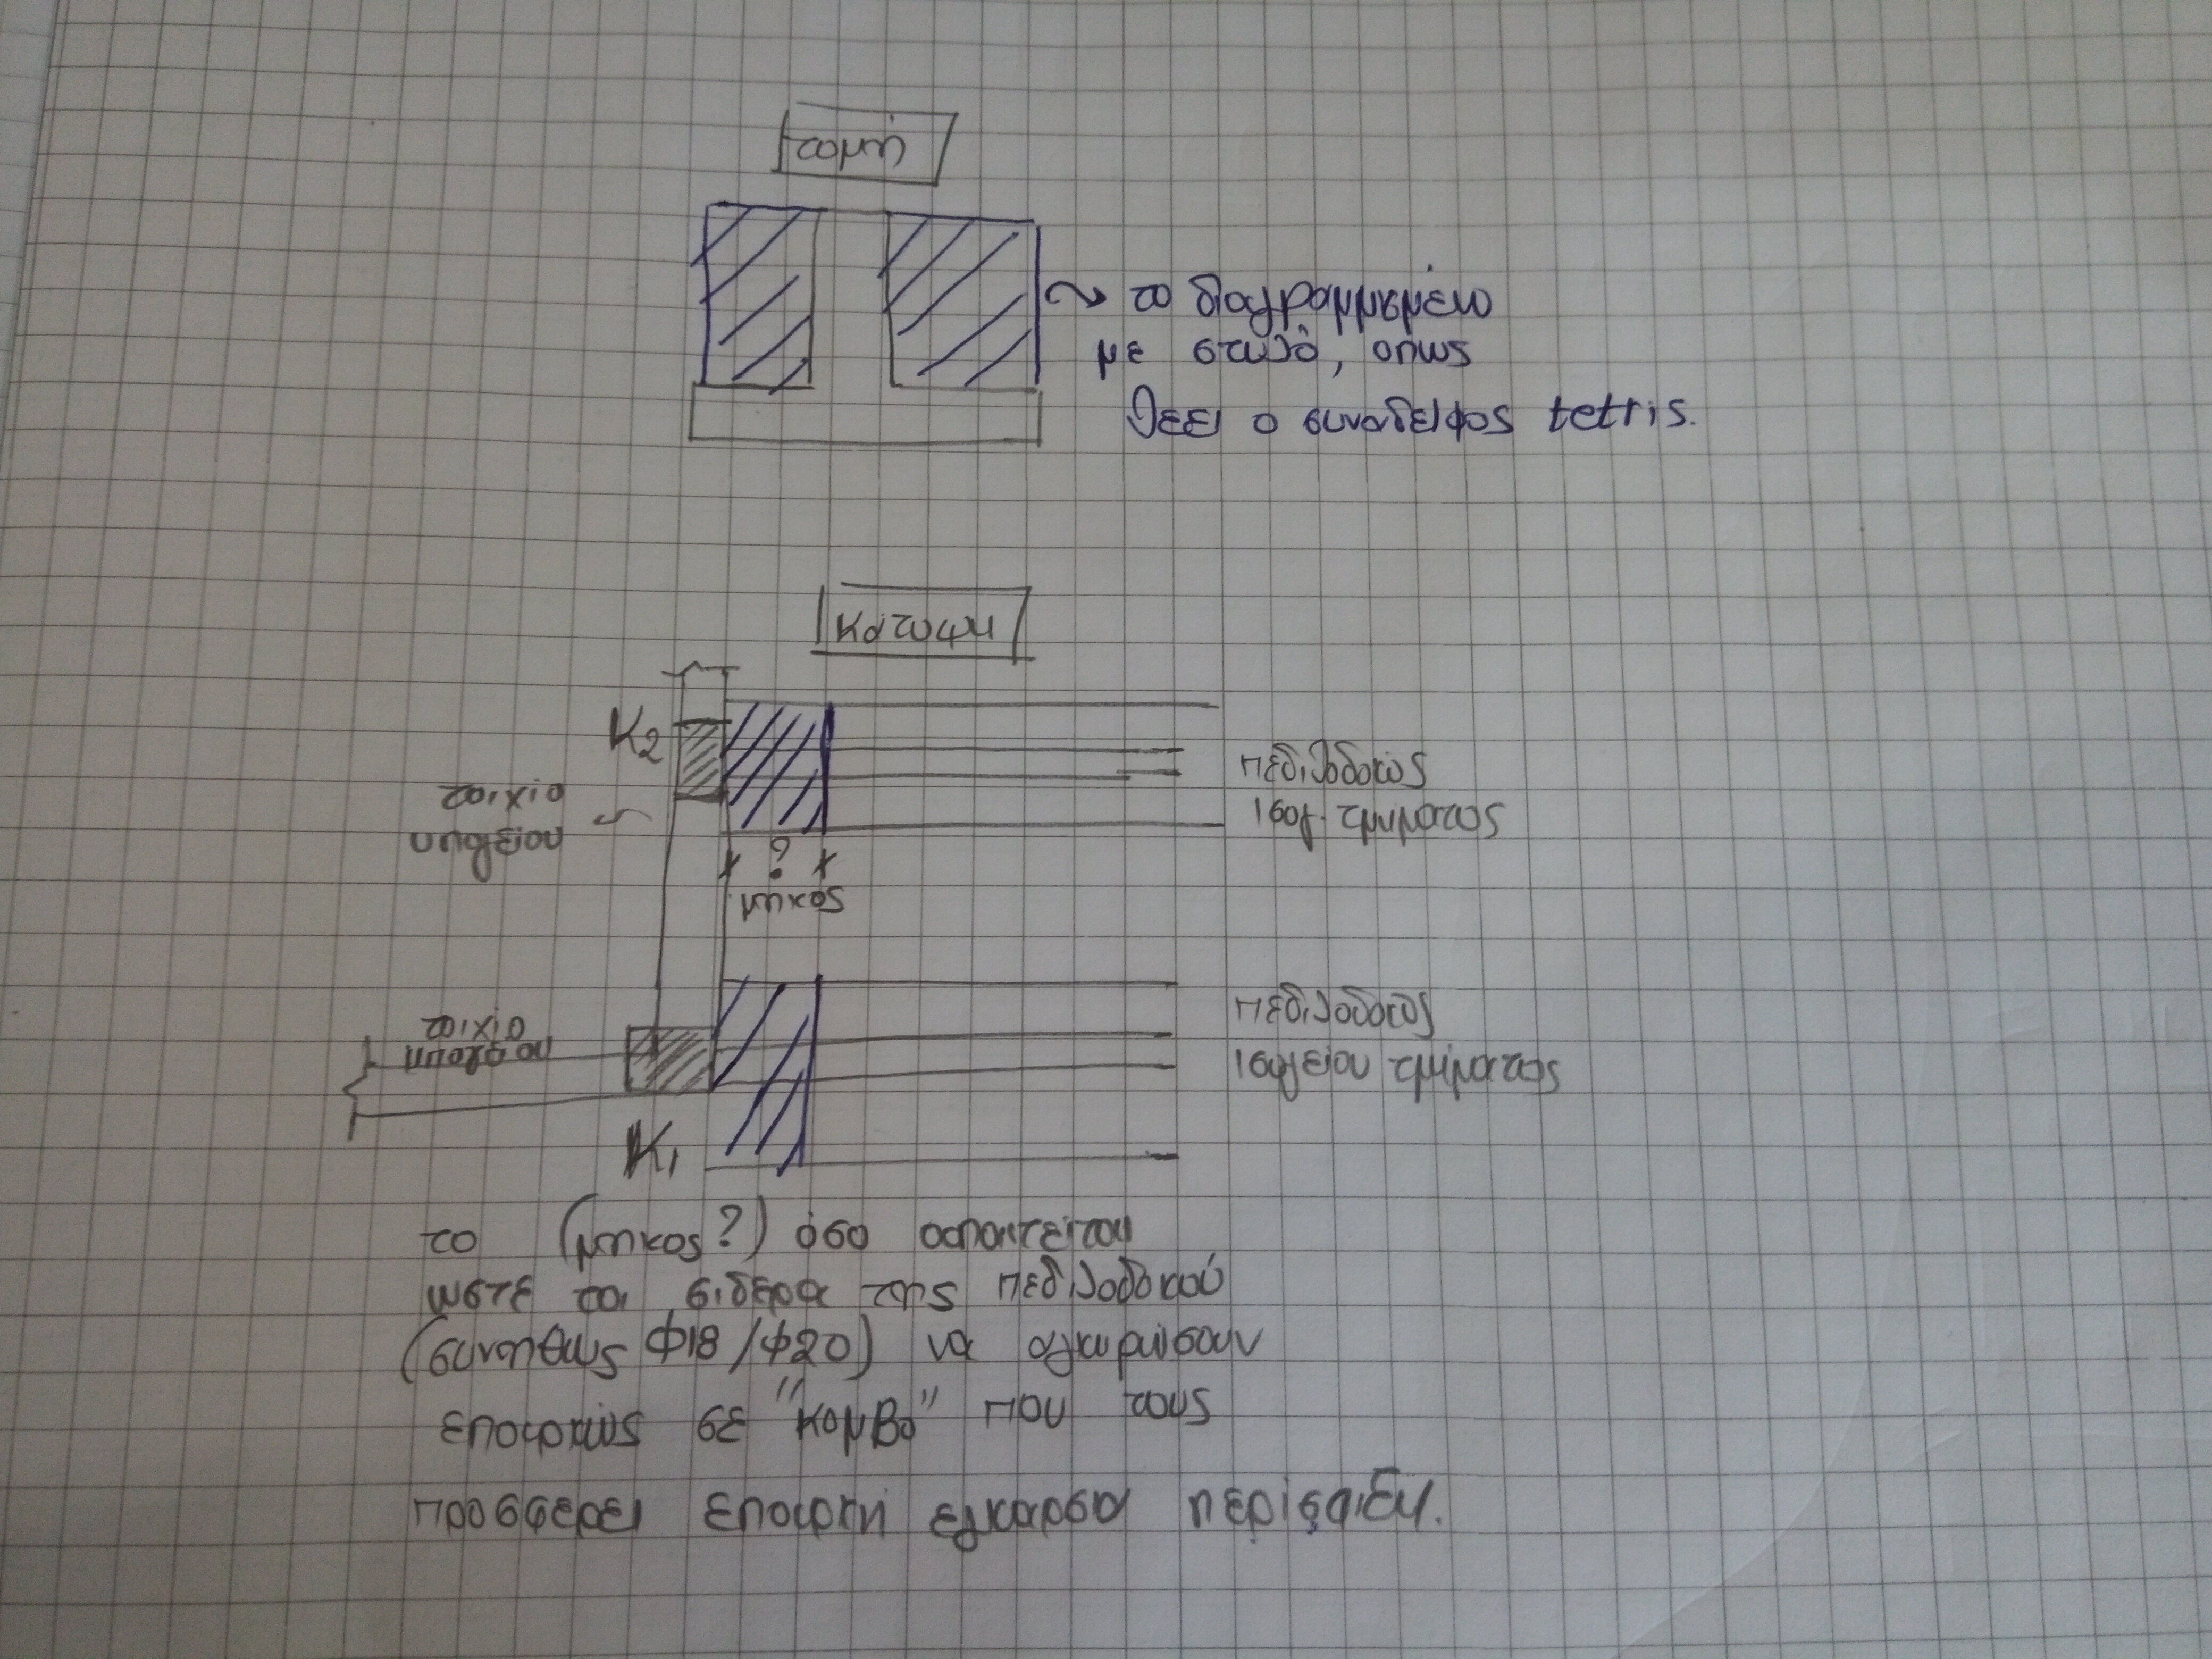 τομή
το διαγραμμισμένο
με στυλό, οπως
λεει ο συναδελφος tetris.
κάτοψη
K2
τοιχιο
υπογειου
πεδιλοδοκός
ισογ. τμηματος
?
μηκος
τοιχιο
υπογειου
πεδιλοδοκος
ισογειου τμήματος
K1
το (μηκος?) όσο απαιτειται
ωστε τα σιδερα της πεδιλοδοκού
(συνηθως Φ18/Φ20) να αγκυρώσουν
επαρκώς σε "κομβο" που τους
προσφερει επαρκή εγκαρσια περίσφιξη.